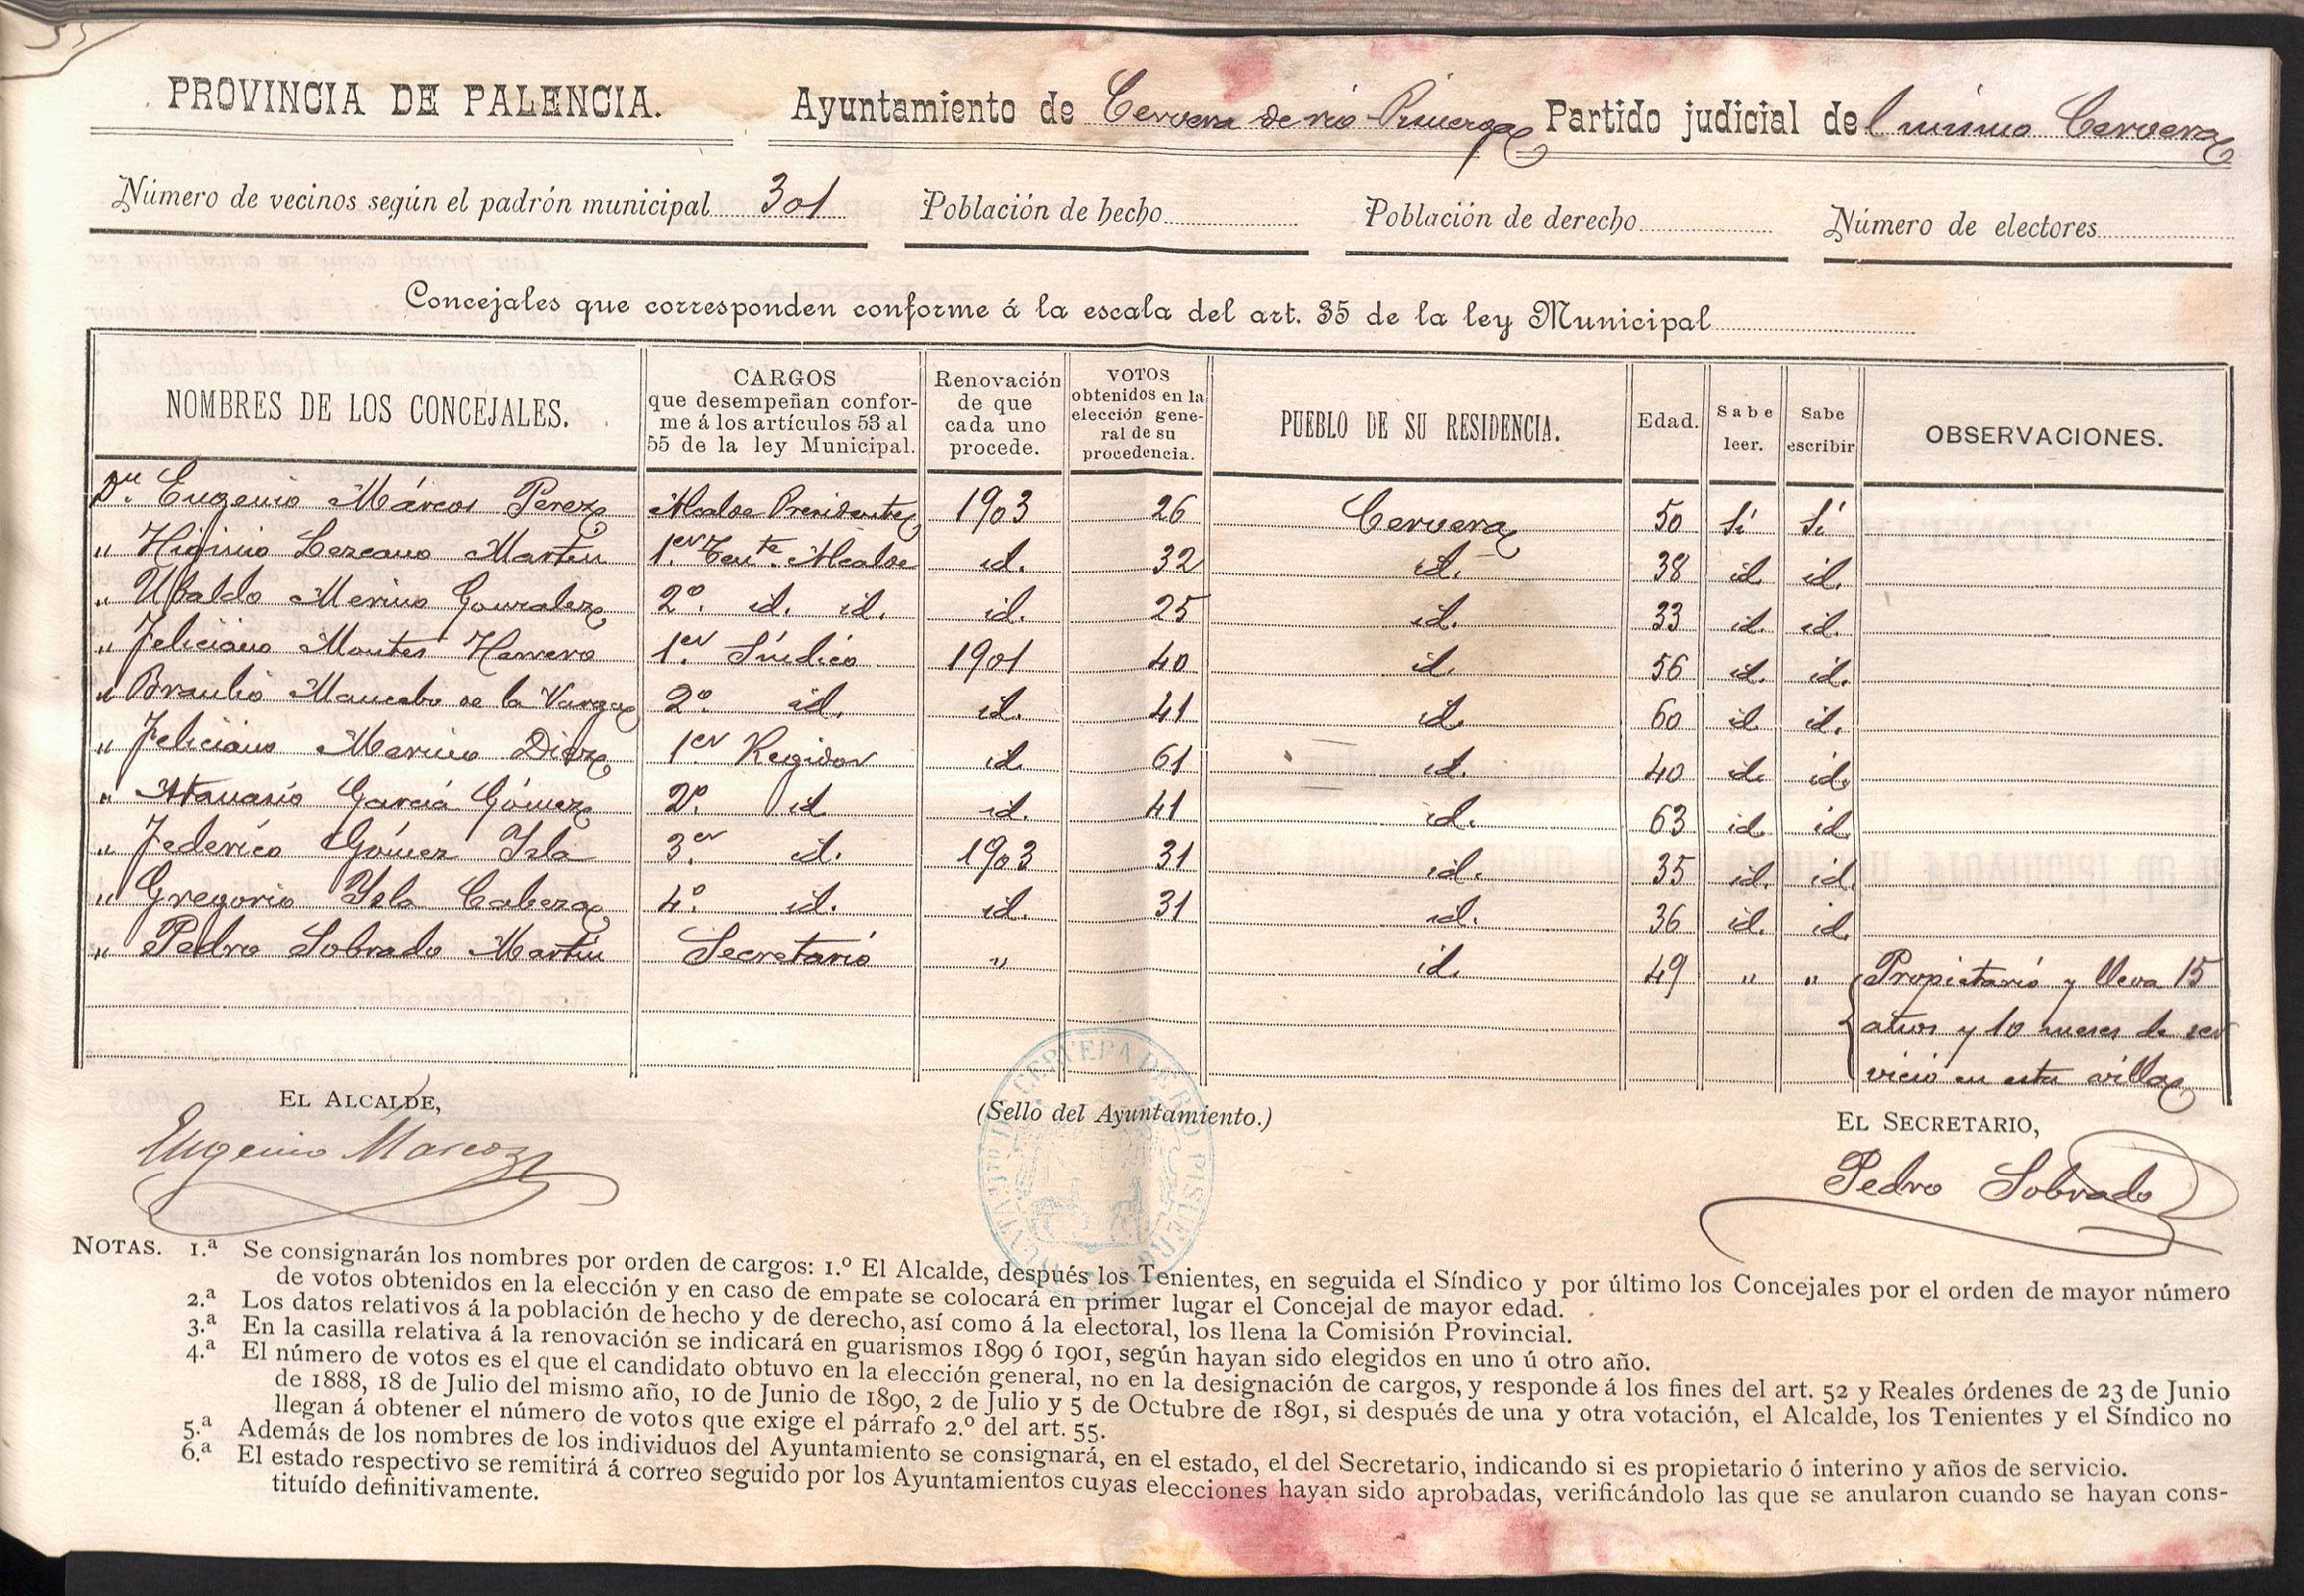 PROVINCIA DE PALENCIA. Ayuntamiento de Cervera de rio Pisuerga Partido judicial del mismo Cervera
Número de vecinos según el padrón municipal 301 Población de hecho Población de derecho Número de electores
Concejales que corresponden conforme á la escala del art. 35 de la ley Municipal
NOMBRES DE LOS CONCEJALES. CARGOS que desempeñan conforme á los artículos 53 al 55 de la ley Municipal. Renovación de que cada uno procede. VOTOS obtenidos en la elección general de su procedencia. PUEBLO DE SU RESIDENCIA. Edad. Sabe leer. Sabe escribir OBSERVACIONES.
Dn. Eugenio Márcos Perez Alcalde Presidente 1903 26 Cervera 50 Sí Sí
" Higinio Lezcano Martin 1er Tente. Alcalde id. 32 id. 38 id id.
" Ubaldo Merino Gonzalez 2º. id. id. id. 25 id. 33 id. id.
" Feliciano Montes Herrero 1er. Síndico 1901 40 id. 56 id. id.
" Braulio Mancebo de la Varga 2º. id. id. 41 id. 60 id id.
" Feliciano Merino Diez 1er Regidor id. 61 id. 40 id. id.
" Atanasio García Gómez 2º. id. id. 41 id. 63 id. id.
" Federico Gómez Isla 3er. id. 1903 31 id. 35 id. id.
" Gregorio Isla Cabeza 4º. id. id. 31 id. 36 id. id.
" Pedro Sobrado Martin Secretario " id. 49 " " Propietario y lleva 15
años y 10 meses de ser
vicio en esta villa
EL ALCALDE, (Sello del Ayuntamiento.) EL SECRETARIO,
Eugenio Marcos Pedro Sobrado
AYUNTAMIENTO DE CERVERA DE RIO PISUERGA
NOTAS. 1.ª Se consignarán los nombres por orden de cargos: 1.º El Alcalde, después los Tenientes, en seguida el Síndico y por último los Concejales por el orden de mayor número
de votos obtenidos en la elección y en caso de empate se colocará en primer lugar el Concejal de mayor edad.
2.ª Los datos relativos á la población de hecho y de derecho, así como á la electoral, los llena la Comisión Provincial.
3.ª En la casilla relativa á la renovación se indicará en guarismos 1899 ó 1901, según hayan sido elegidos en uno ú otro año.
4.ª El número de votos es el que el candidato obtuvo en la elección general, no en la designación de cargos, y responde á los fines del art. 52 y Reales órdenes de 23 de Junio
de 1888, 18 de Julio del mismo año, 10 de Junio de 1890, 2 de Julio y 5 de Octubre de 1891, si después de una y otra votación, el Alcalde, los Tenientes y el Síndico no
llegan á obtener el número de votos que exige el párrafo 2.º del art. 55.
5.ª Además de los nombres de los individuos del Ayuntamiento se consignará, en el estado, el del Secretario, indicando si es propietario ó interino y años de servicio.
6.ª El estado respectivo se remitirá á correo seguido por los Ayuntamientos cuyas elecciones hayan sido aprobadas, verificándolo las que se anularon cuando se hayan cons-
tituído definitivamente.